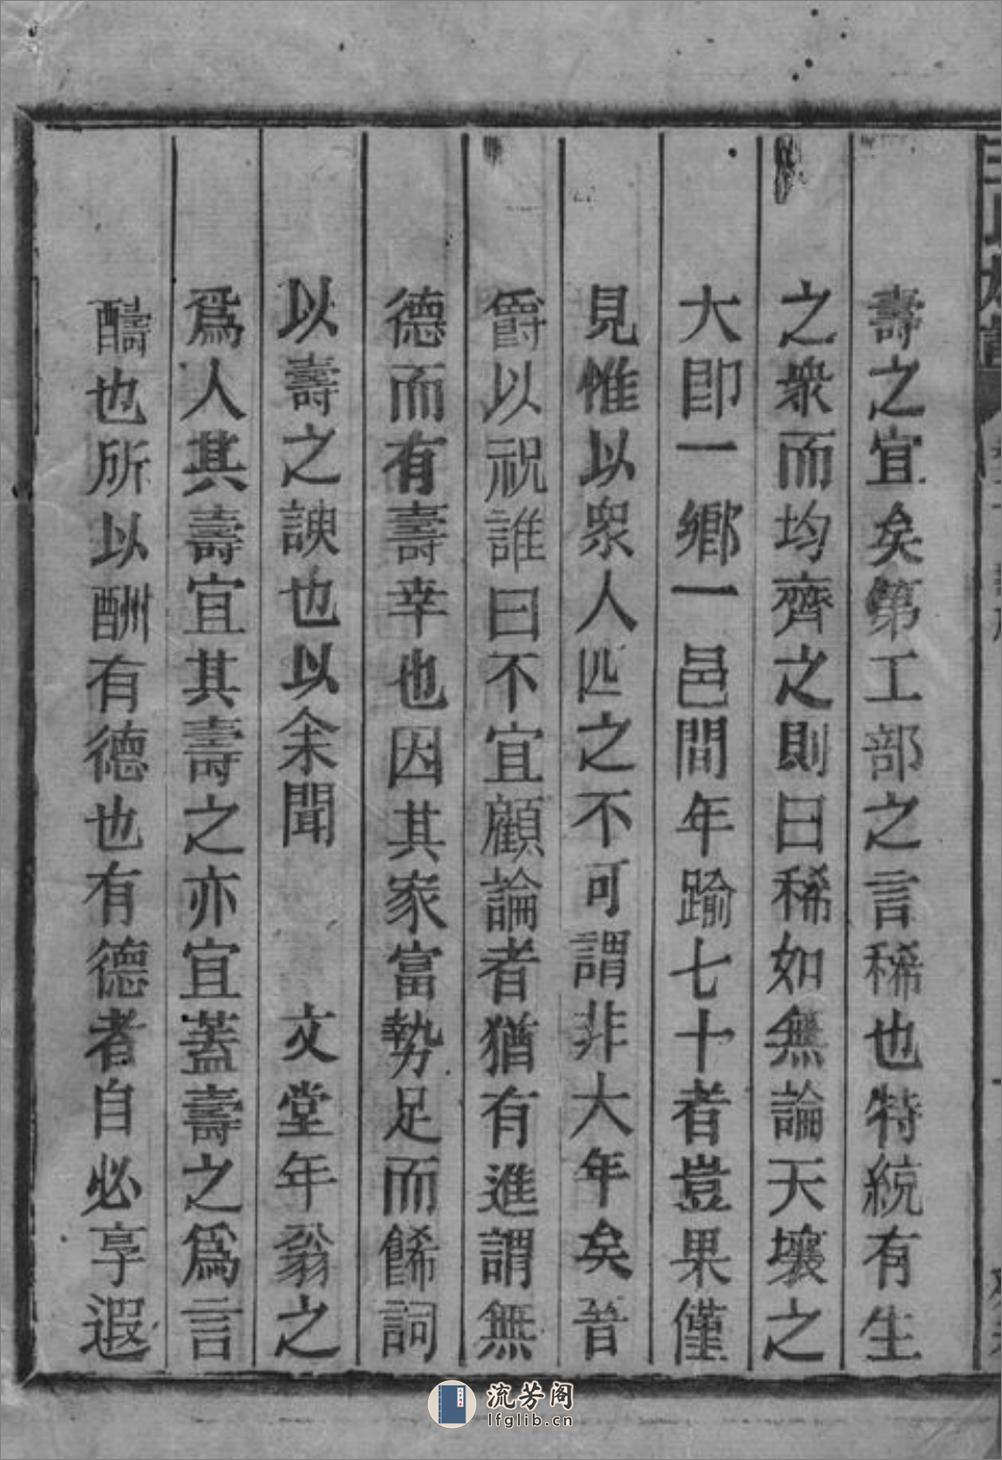 壽之宜矣第工部之言稀也特統有生
之衆而均齊之則曰稀如無論天壤之
大卽一鄉一邑間年踰七十者豈果僅
見惟以衆人匹之不可謂非大年矣晉
爵以祝誰曰不宜顧論者猶有進謂無
德而有壽幸也因其家富勢足而餙詞
以壽之諛也以余聞　文堂年翁之
爲人其壽宜其壽之亦宜蓋壽之爲言
醻也所以酬有德也有德者自必享遐
流芳阁
lfglib.cn